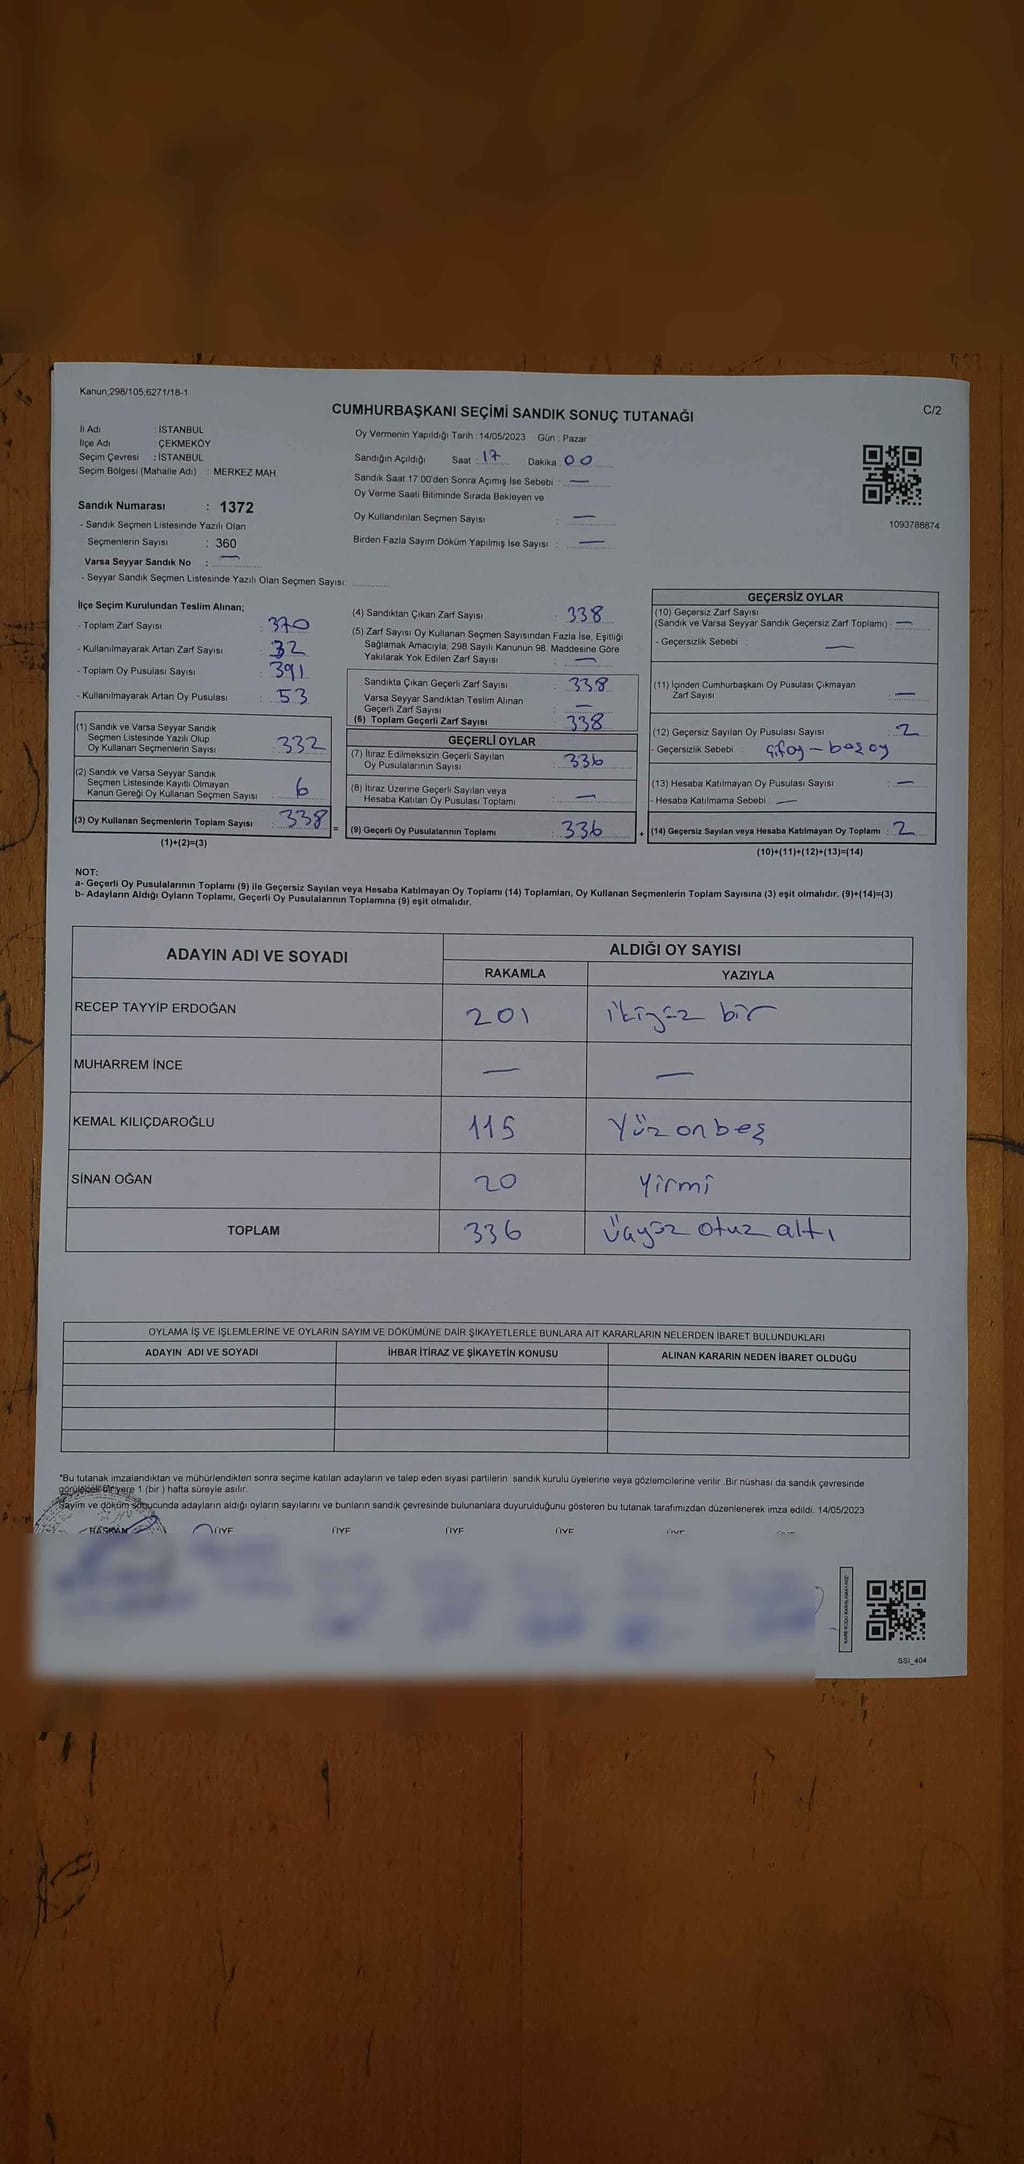 Kanun;298/105;6271/18-1
C/2
CUMHURBAŞKANI SEÇİMİ SANDIK SONUÇ TUTANAĞI
İl Adı : İSTANBUL
İlçe Adı : ÇEKMEKÖY
Seçim Çevresi : İSTANBUL
Seçim Bölgesi (Mahalle Adı) : MERKEZ MAH.
Sandık Numarası : 1372
- Sandık Seçmen Listesinde Yazılı Olan
Seçmenlerin Sayısı : 360
Varsa Seyyar Sandık No : —
- Seyyar Sandık Seçmen Listesinde Yazılı Olan Seçmen Sayısı:
Oy Vermenin Yapıldığı Tarih : 14/05/2023 Gün : Pazar
Sandığın Açıldığı Saat : 17 Dakika : 00
Sandık Saat 17:00'den Sonra Açımış İse Sebebi : —
Oy Verme Saati Bitiminde Sırada Bekleyen ve
Oy Kullandırılan Seçmen Sayısı : —
Birden Fazla Sayım Döküm Yapılmış İse Sayısı : —
1093788874
İlçe Seçim Kurulundan Teslim Alınan;
- Toplam Zarf Sayısı : 370
- Kullanılmayarak Artan Zarf Sayısı : 32
- Toplam Oy Pusulası Sayısı : 391
- Kullanılmayarak Artan Oy Pusulası : 53
(1) Sandık ve Varsa Seyyar Sandık
Seçmen Listesinde Yazılı Olup
Oy Kullanan Seçmenlerin Sayısı : 332
(2) Sandık ve Varsa Seyyar Sandık
Seçmen Listesinde Kayıtlı Olmayan
Kanun Gereği Oy Kullanan Seçmen Sayısı : 6
(3) Oy Kullanan Seçmenlerin Toplam Sayısı : 338
(1)+(2)=(3)
(4) Sandıktan Çıkan Zarf Sayısı : 338
(5) Zarf Sayısı Oy Kullanan Seçmen Sayısından Fazla İse, Eşitliği
Sağlamak Amacıyla, 298 Sayılı Kanunun 98. Maddesine Göre
Yakılarak Yok Edilen Zarf Sayısı : —
Sandıkta Çıkan Geçerli Zarf Sayısı : 338
Varsa Seyyar Sandıktan Teslim Alınan
Geçerli Zarf Sayısı : —
(6) Toplam Geçerli Zarf Sayısı : 338
GEÇERLİ OYLAR
(7) İtiraz Edilmeksizin Geçerli Sayılan
Oy Pusulalarının Sayısı : 336
(8) İtiraz Üzerine Geçerli Sayılan veya
Hesaba Katılan Oy Pusulası Toplamı : —
= (9) Geçerli Oy Pusulalarının Toplamı : 336 +
GEÇERSİZ OYLAR
(10) Geçersiz Zarf Sayısı
(Sandık ve Varsa Seyyar Sandık Geçersiz Zarf Toplamı) : —
- Geçersizlik Sebebi : —
(11) İçinden Cumhurbaşkanı Oy Pusulası Çıkmayan
Zarf Sayısı : —
(12) Geçersiz Sayılan Oy Pusulası Sayısı : 2
- Geçersizlik Sebebi : çifoy – boş oy
(13) Hesaba Katılmayan Oy Pusulası Sayısı : —
- Hesaba Katılmama Sebebi : —
(14) Geçersiz Sayılan veya Hesaba Katılmayan Oy Toplamı : 2
(10)+(11)+(12)+(13)=(14)
NOT:
a- Geçerli Oy Pusulalarının Toplamı (9) ile Geçersiz Sayılan veya Hesaba Katılmayan Oy Toplamı (14) Toplamları, Oy Kullanan Seçmenlerin Toplam Sayısına (3) eşit olmalıdır. (9)+(14)=(3)
b- Adayların Aldığı Oyların Toplamı, Geçerli Oy Pusulalarının Toplamına (9) eşit olmalıdır.
ADAYIN ADI VE SOYADI ALDIĞI OY SAYISI
RAKAMLA YAZIYLA
RECEP TAYYİP ERDOĞAN 201 ikiyüz bir
MUHARREM İNCE — —
KEMAL KILIÇDAROĞLU 115 Yüz onbeş
SİNAN OĞAN 20 yirmi
TOPLAM 336 üçyüz otuz altı
OYLAMA İŞ VE İŞLEMLERİNE VE OYLARIN SAYIM VE DÖKÜMÜNE DAİR ŞİKAYETLERLE BUNLARA AİT KARARLARIN NELERDEN İBARET BULUNDUKLARI
ADAYIN ADI VE SOYADI İHBAR İTİRAZ VE ŞİKAYETİN KONUSU ALINAN KARARIN NEDEN İBARET OLDUĞU
*Bu tutanak imzalandıktan ve mühürlendikten sonra seçime katılan adayların ve talep eden siyasi partilerin sandık kurulu üyelerine veya gözlemcilerine verilir. Bir nüshası da sandık çevresinde
görülecek bir yere 1 (bir ) hafta süreyle asılır.
Sayım ve döküm sonucunda adayların aldığı oyların sayılarını ve bunların sandık çevresinde bulunanlara duyurulduğunu gösteren bu tutanak tarafımızdan düzenlenerek imza edildi. 14/05/2023
BAŞKAN ÜYE ÜYE ÜYE ÜYE ÜYE
SSI_404